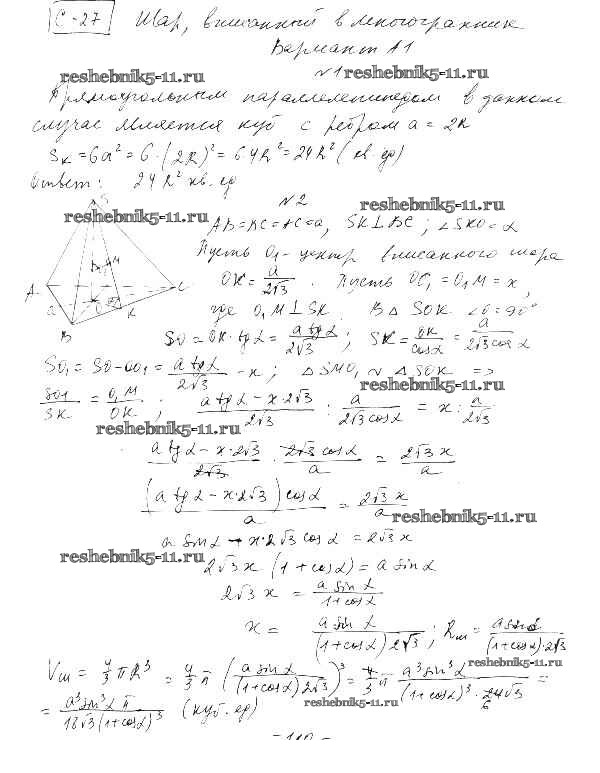 С-27 Шар, вписанный в многогранник
Вариант А1
reshebnik5-11.ru №1 reshebnik5-11.ru
Прямоугольным параллелепипедом в данном
случае является куб с ребром a = 2R
Sк = 6a² = 6·(2R)² = 6·4R² = 24R² (кв. ед)
Ответ: 24R² кв. ед
№2 reshebnik5-11.ru
reshebnik5-11.ru
AB=BC=AC=a, SK⊥BC, ∠SKO=α
Пусть O₁ - центр вписанного шара
OK = a/2√3 . Пусть OO₁ = O₁M = x,
где O₁M⊥SK. В △ SOK ∠O=90°
SO = OK·tgα = a tgα/2√3 ; SK = OK/cosα = a/2√3 cosα
SO₁ = SO-OO₁ = a tgα/2√3 - x ; △SMO₁ ∾ △SOK =>
reshebnik5-11.ru
SO1/SK = O₁M/OK ; a tgα - x 2√3/2√3 : a/2√3 cosα = x : a/2√3
reshebnik5-11.ru
a tgα - x·2√3/2√3 · 2√3 cosα/a = 2√3 x/a
(a tgα - x·2√3) cosα/a = 2√3 x/a
reshebnik5-11.ru
a sinα - x·2√3 cosα = 2√3 x
reshebnik5-11.ru
2√3 x (1 + cosα) = a sinα
2√3 x = a sinα/1+cosα
x = a sinα/(1+cosα) 2√3 ; Rш = a sinα/(1+cosα)·2√3
reshebnik5-11.ru
Vш = 4/3 πR³ = 4/3 π (a sinα/(1+cosα) 2√3)³ = 4/3 π a³ sin³α/(1+cosα)³·24√3 =
reshebnik5-11.ru
= a³ sin³α π/18√3 (1+cosα)³ (куб. ед)